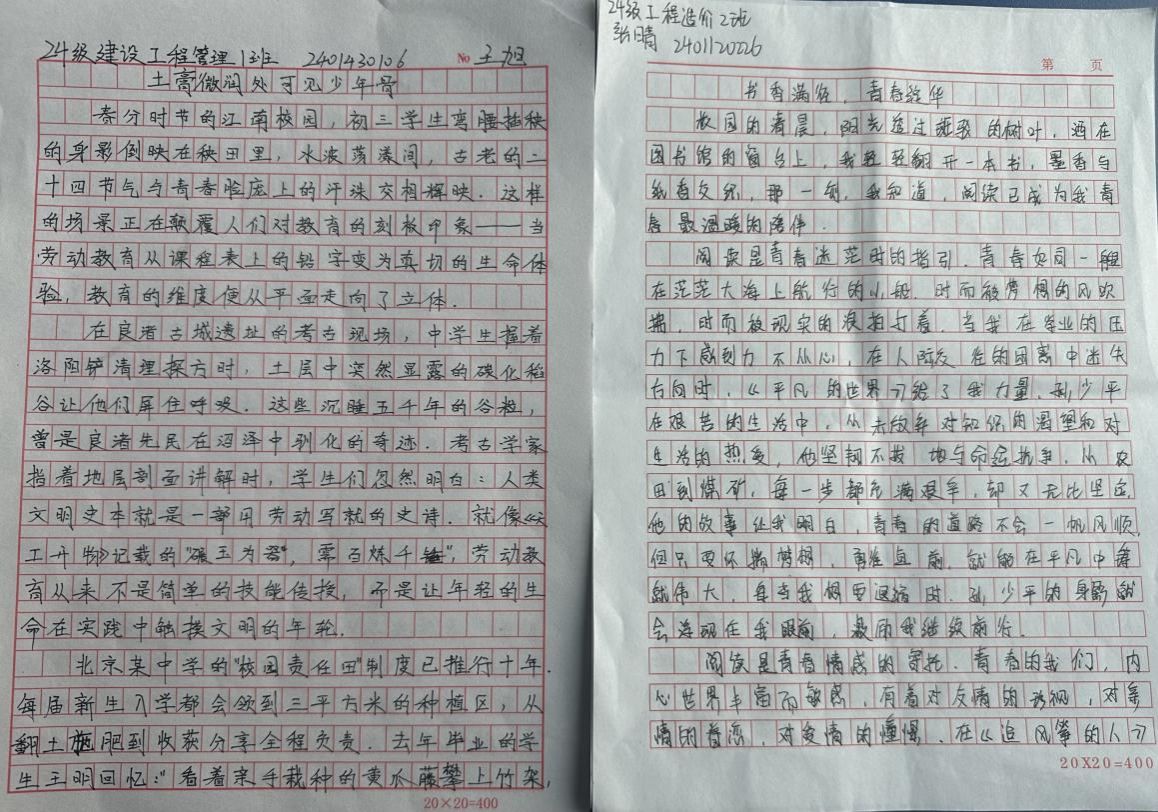 24级建设工程管理1班 2401430106 No 王旭
土膏微润处可见少年骨
春分时节的江南校园，初三学生弯腰插秧
的身影倒映在秧田里，水波荡漾间，古老的二
十四节气与青春脸庞上的汗珠交相辉映．这样
的场景正在颠覆人们对教育的刻板印象——当
劳动教育从课程表上的铅字变为真切的生命体
验，教育的维度便从平面走向了立体．
在良渚古城遗址的考古现场，中学生握着
洛阳铲清理探方时，土层中突然显露的碳化稻
谷让他们屏住呼吸．这些沉睡五千年的谷粒，
曾是良渚先民在沼泽中驯化的奇迹．考古学家
指着地层剖面讲解时，学生们忽然明白：人类
文明史本就是一部用劳动写就的史诗．就像《天
工开物》记载的"碾玉为器"，需百炼千，劳动教
育从来不是简单的技能传授，而是让年轻的生
命在实践中触摸文明的年轮．
北京某中学的"校园责任田"制度已推行十年．
每届新生入学都会领到三平方米的种植区，从
翻土施肥到收获分享全程负责．去年毕业的学
生王明回忆："看着亲手栽种的黄瓜藤攀上竹架，
20×20=400
24级工程造价2班
张晴 2401120226
第 页
书香满径，青春绽华
校园的清晨，阳光透过斑驳的树叶，洒在
图书馆的窗台上，我轻轻翻开一本书，墨香与
纸香交织，那一刻，我知道，阅读已成为我青
春最温暖的陪伴．
阅读是青春迷茫时的指引．青春如同一艘
在茫茫大海上航行的小船．时而被梦想的风吹
拂，时而被现实的浪拍打着，当我在学业的压
力下感到力不从心，在人际交往的困惑中迷失
方向时，《平凡的世界》给了我力量，孙少平
在艰苦的生活中，从未放弃对知识的渴望和对
生活的热爱，他坚韧不拔地与命运抗争．从农
田到煤矿，每一步都充满艰辛，却又无比坚定
他的故事让我明白，青春的道路不会一帆风顺
但只要怀揣梦想，勇往直前，就能在平凡中铸
就伟大．每当我想要退缩时．孙少平的身影就
会浮现在我眼前，激励我继续前行．
阅读是青春情感的寄托．青春的我们，内
心世界丰富而敏感，有着对友情的珍视，对亲
情的眷恋，对爱情的憧憬．在《追风筝的人》
20X20=400